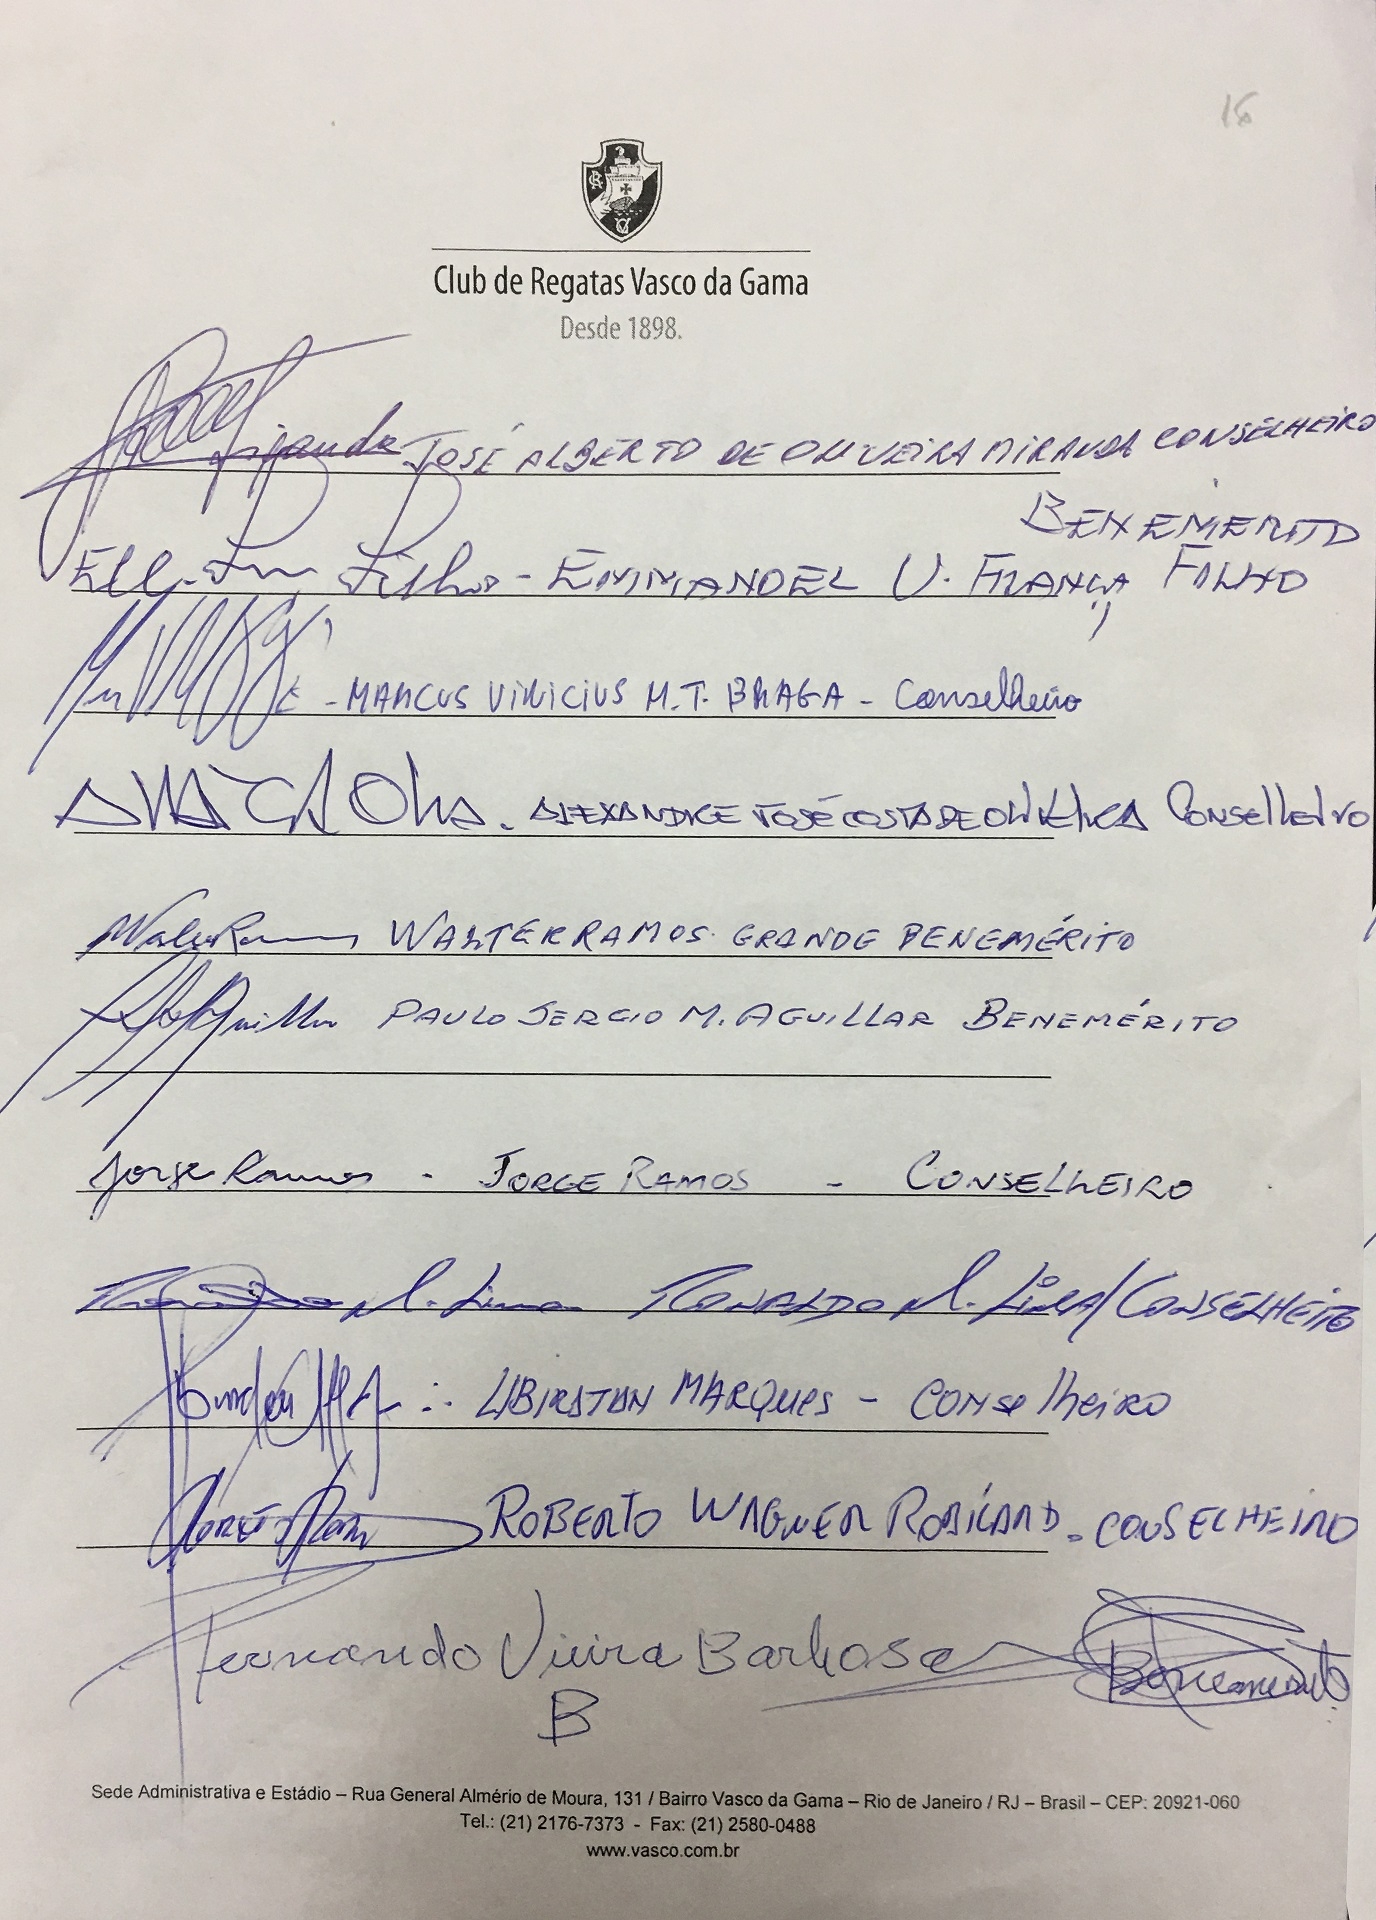 16
Club de Regatas Vasco da Gama
Desde 1898.
JOSÉ ALBERTO DE OLIVEIRA MIRANDA CONSELHEIRO
BENEMERITO
Filho - EMMANOEL U. FRANÇA FILHO
- MARCUS VINICIUS M.T. BRAGA - Conselheiro
ALEXANDRE JOSÉ COSTA DE OLIVEIRA Conselheiro
Walter Ramos WALTER RAMOS. GRANDE BENEMÉRITO
Aguillar PAULO SERGIO M. AGUILLAR BENEMÉRITO
Jorge Ramos - JORGE RAMOS - CONSELHEIRO
N. Lima RONALDO N. LIMA/CONSELHEIRO
UBIRATAN MARQUES - CONSelheiRO
ROBERTO WAGNER ROBICARD - CONSELHEIRO
Fernando Vieira Barbosa Benemerito
B
Sede Administrativa e Estádio – Rua General Almério de Moura, 131 / Bairro Vasco da Gama – Rio de Janeiro / RJ – Brasil – CEP: 20921-060
Tel.: (21) 2176-7373 - Fax: (21) 2580-0488
www.vasco.com.br